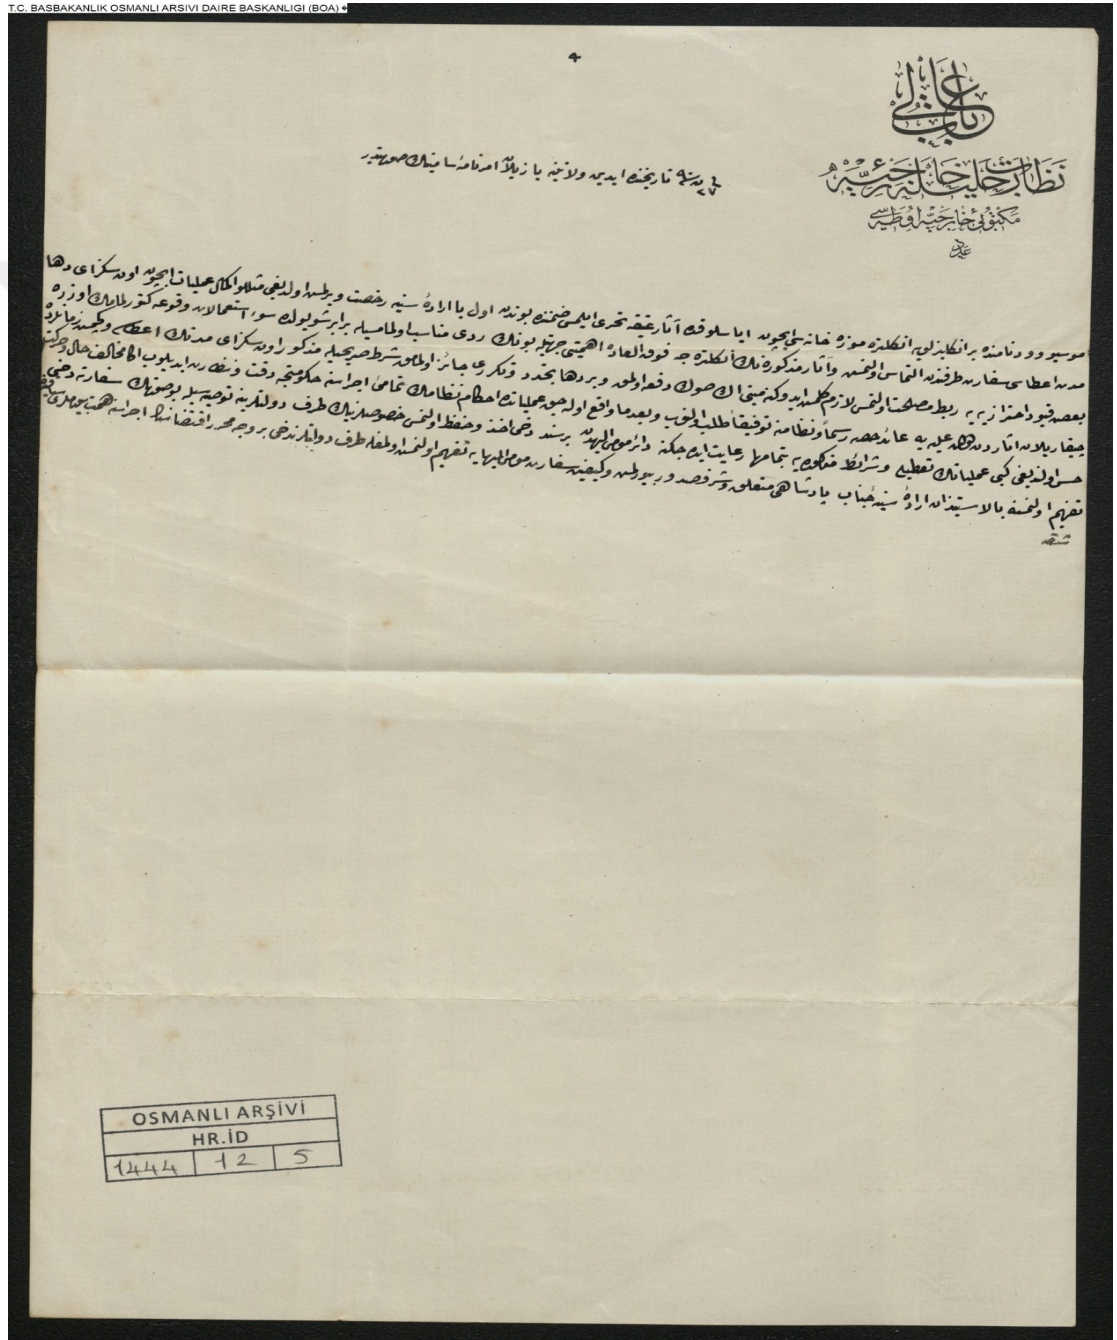 T.C. BASBAKANLIK OSMANLI ARSIVI DAIRE BASKANLIGI (BOA)
٤
باب عالی
نظارت جلیلۀ خارجیه
مکتوبئ خارجیه اوطه سی
عدد
تاریخنده ایدین ولایتنه یازیلان امرنامۀ سامینك صورتیدر
موسیو وود نامنده بر انكلیزلوی انكلتره موزه خانه سی ایچون ایاسلوقده آثار عتیقه تحری ایلمسی ضمننده بوندن اول با ارادۀ سنیه رخصت ویرلمش اولدیغی مثللو اكمال عملیات ایچون اون سكز آی دها
مدت اعطاسی سفارت طرفندن التماس اولنمش وآثار مذكوره نك انكلتره جه فوق العاده اهمیتی جهتیله بونك ردی مناسب اولمامسیله برابر شو یولده سوء استعمالات وقوعه كتورلمامك اوزره
بعض قیود احترازیه یه ربط مصلحت اولنمق لازم كلمش ایدوكنه مبنی الك صوك دفعه اولمق وبر دها تجدد وتكرری جائز اولمامق شرط صریحیله مذكور اون سكز آی مدتك اعطاسی
چیقاریلان آثاردن عائد حصه رسماً ونظامنه توفیقاً طلب اولنوب وبعدما واقع اوله جق عملیاتده احكام نظامك تمامئ اجراسنه حكومتجه دقت ونظارت ایدیلوب اكا مخالف حال وحركت
حس اولندیغی كبی عملیاتك تعطیلی وشرائط مذكوره یه تمامها رعایت ایده جكنه دائر مومی الیهدن بر سند دخی اخذ وحفظ اولنمسی خصوصلرینك طرف دولتلرینه توصیه سیله بو صورتك سفارته دخی
تفهیم اولنمسی بالاستیذان ارادۀ سنیۀ جناب پادشاهی متعلق وشرفصدور بیورلمش وكیفیت سفارت مومی الیهایه تفهیم اولنمش اولمغله طرف دولتلرندن دخی بر وجه محرر اقتضاسنك اجراسنه همت بیورملری
OSMANLI ARŞİVİ
HR.İD
1444 12 5